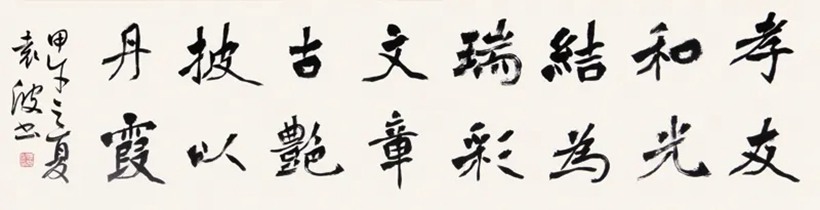 孝友
和光
結為
瑞彩
文章
古艷
披以
丹霞
甲午之夏
袁波書